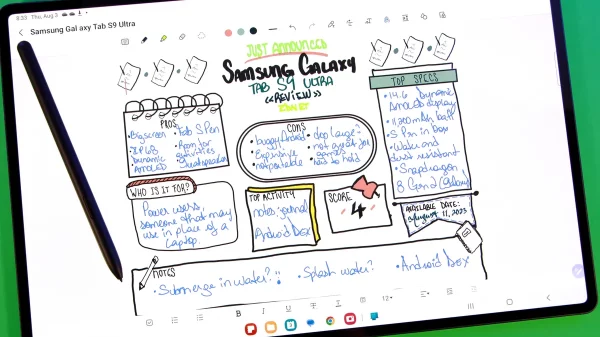 8:33 Thu, Aug 3
Samsung Galaxy Tab S9 Ultra
JUST ANNOUNCED
SAMSUNG GALAXY
TAB S9 ULTRA
<<REVIEW>>
PROS
• Big screen
Dynamic
AMOLED
• Tab S Pen
• Room for
activities
• Great speakers
CONS
• buggy Android
• Expensive
• not portable
• too large?
• not great for
games
• hard to hold
TOP SPECS
• 14.6 Dynamic
AMOLED display
• 11,200 mAh batt
• S Pen in box
• Water and
dust resistant
• Snapdragon
8 Gen 2 (Galaxy)
WHO IS IT FOR?
Power users,
someone that may
use in place of a
Laptop.
TOP ACTIVITY
notes, journal
Android DEX
SCORE
4
AVAILABLE DATE:
August 11, 2023
NOTES
• Submerge in water?!
• Splash water?
• Android DEX
B I U T
12